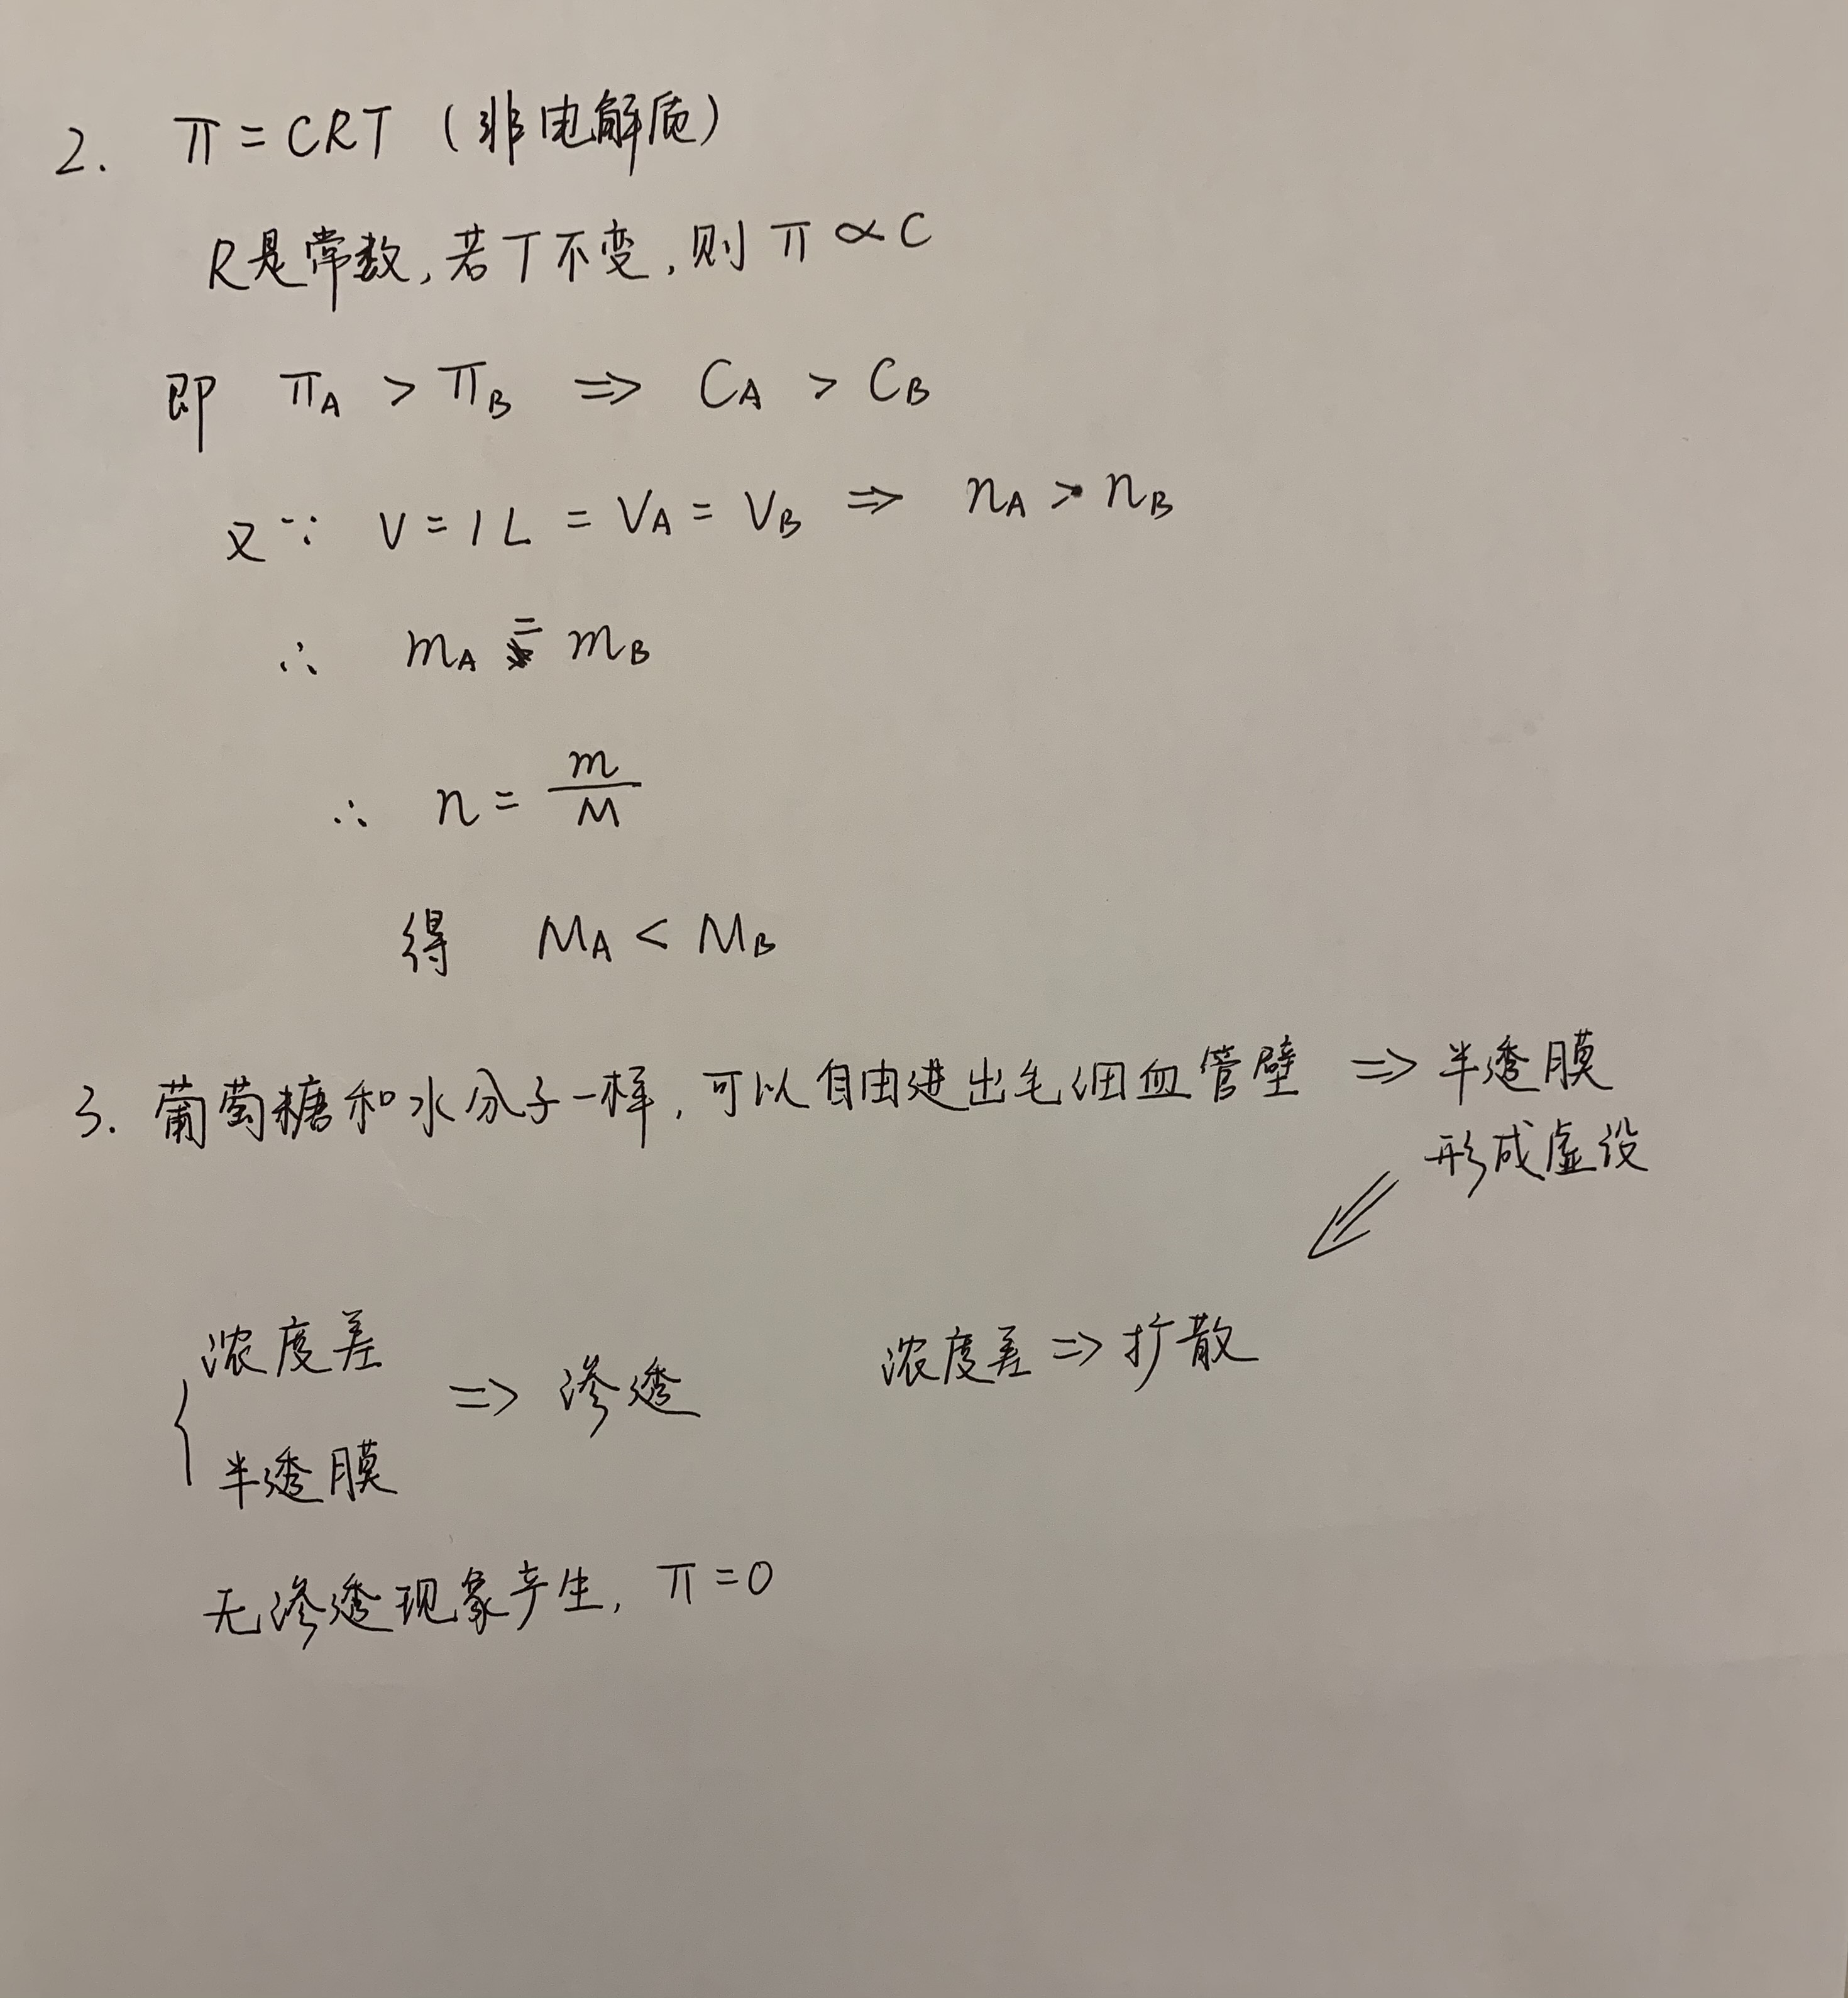 2. π = CRT (非电解质)
R是常数,若T不变,则 π ∝ C
即 πA > πB ⇒ CA > CB
又∵ V = 1L = VA = VB ⇒ nA > nB
∴ mA = mB
∴ n = m/M
得 MA < MB
3. 葡萄糖和水分子一样,可以自由进出毛细血管壁 ⇒ 半透膜
形成虚设
浓度差 ⇒ 扩散
{ 浓度差
半透膜 ⇒ 渗透
无渗透现象产生, π = 0